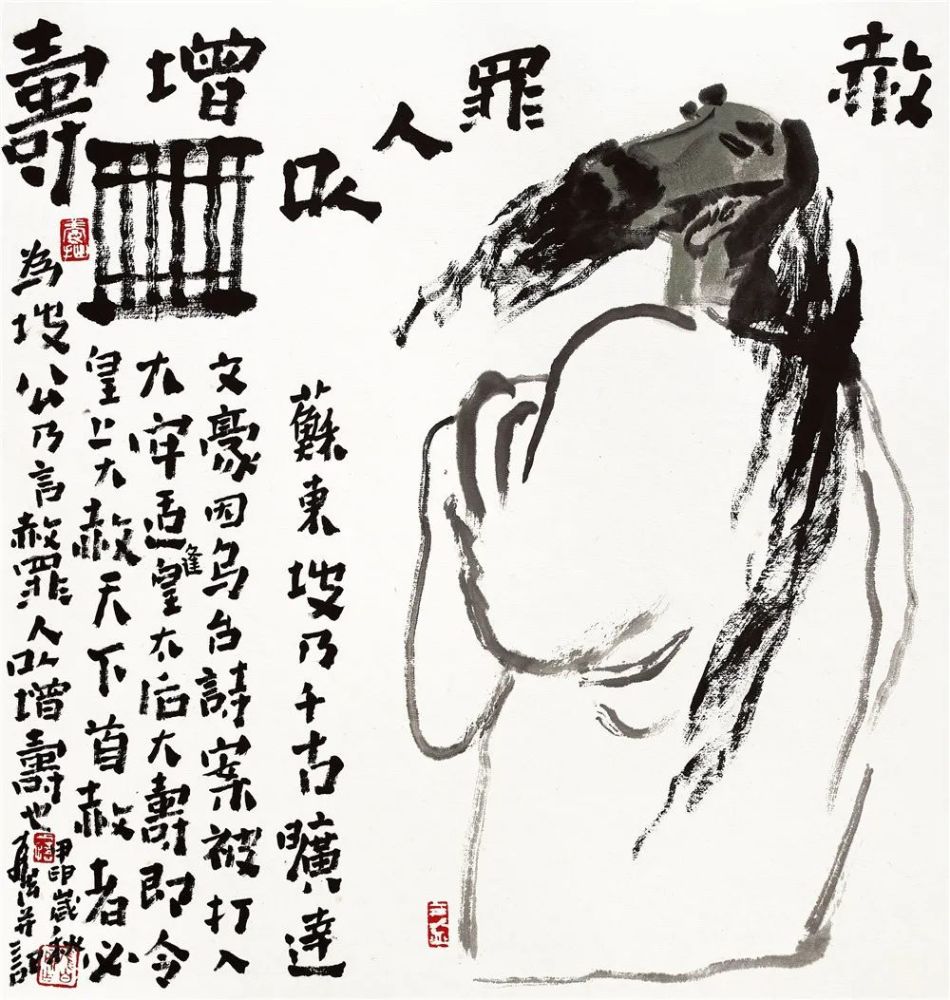 赦罪人以增壽
蘇東坡乃千古曠達
文豪因烏台詩案被打入
大牢适皇太后大壽即令
皇上大赦天下首赦者必
為坡公乃言赦罪人以增壽也
歲秋
并記